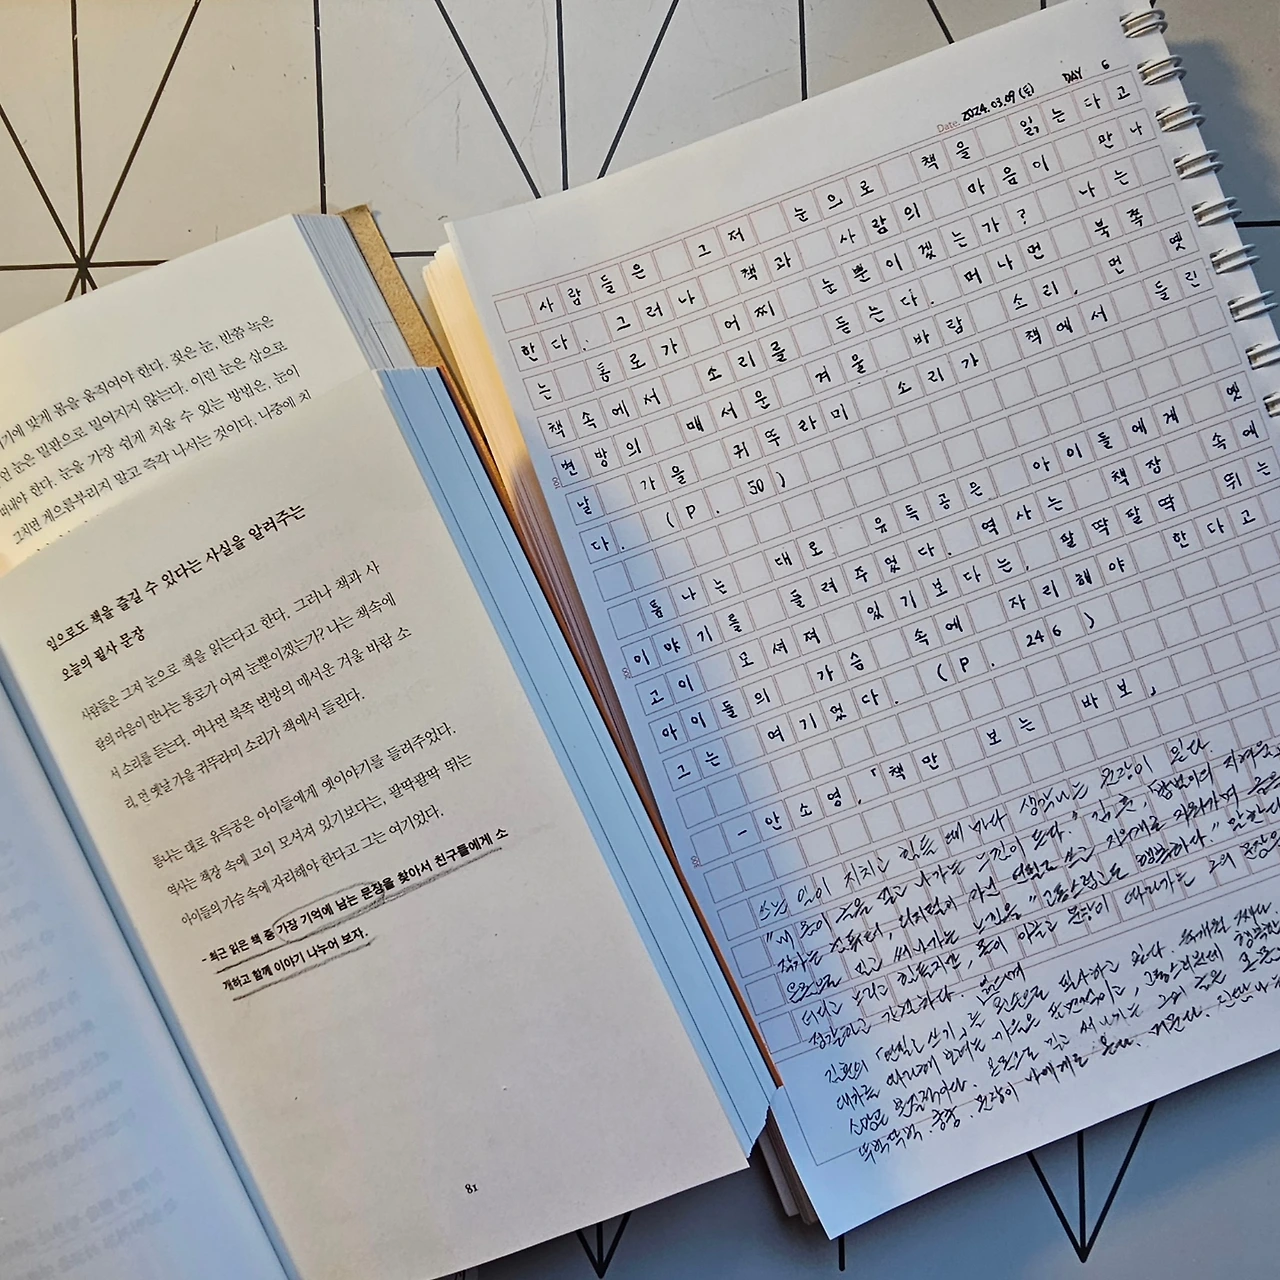 기에 맞게 몸을 움직여야 한다. 젖은 눈, 반쯤 녹은
언 눈은 밀판으로 밀어지지 않는다. 이런 눈은 삽으로
내야 한다. 눈을 가장 쉽게 치울 수 있는 방법은, 눈이
그치면 게으름부리지 말고 즉각 나서는 것이다. 나중에 치
입으로도 책을 즐길 수 있다는 사실을 알려주는
오늘의 필사 문장
사람들은 그저 눈으로 책을 읽는다고 한다. 그러나 책과 사
람의 마음이 만나는 통로가 어찌 눈뿐이겠는가? 나는 책속에
서 소리를 듣는다. 머나먼 북쪽 변방의 매서운 겨울 바람 소
리, 먼 옛날 가을 귀뚜라미 소리가 책에서 들린다.
틈나는 대로 유득공은 아이들에게 옛이야기를 들려주었다.
역사는 책장 속에 고이 모셔져 있기보다는, 팔딱팔딱 뛰는
아이들의 가슴 속에 자리해야 한다고 그는 여기었다.
- 최근 읽은 책 중 가장 기억에 남는 문장을 찾아서 친구들에게 소
개하고 함께 이야기 나누어 보자.
81
Date. 2024.03.09(토) DAY 6
사람들은 그저 눈으로 책을 읽는다고
한다. 그러나 책과 사람의 마음이 만나
는 통로가 어찌 눈뿐이겠는가? 나는
책속에서 소리를 듣는다. 머나먼 북쪽
변방의 매서운 겨울 바람 소리, 먼 옛
날 가을 귀뚜라미 소리가 책에서 들린
다. (P. 50)
틈나는 대로 유득공은 아이들에게 옛
이야기를 들려주었다. 역사는 책장 속에
고이 모셔져 있기보다는, 팔딱팔딱 뛰는
아이들의 가슴 속에 자리해야 한다고
그는 여기었다. (P. 246)
- 안소영, 「책만 보는 바보」
쓰는 일이 지치고 힘들 때마다 생각나는 문장이 있다.
"내 몸이 글을 밀고 나가는 느낌이 든다." 김훈, 밥벌이의 지겨움
작가는 컴퓨터, 디지털이 아닌 연필로 쓰고 지우개로 지워가며 글을
온몸으로 밀고 써나가는 느낌을 "고통스럽고도 행복하다." 말한다
더디고 느리고 힘들지만, 몸이 이끌고 문장이 따라가는 그의 문장은
정갈하고 간결하다.
김훈의 「연필로 쓰기」를 필사하고 있다.